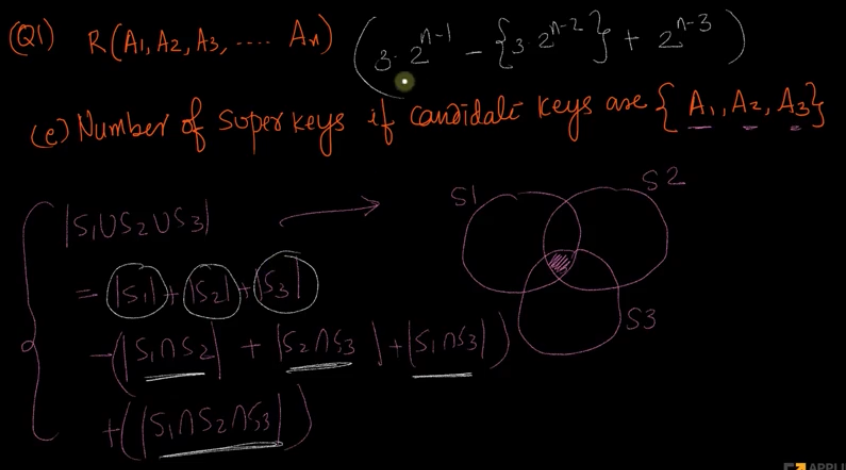 (Q1) R(A1, A2, A3, .... An) (3·2^{n-1} - {3·2^{n-2}} + 2^{n-3})
(e) Number of super keys if candidate keys are {A1, A2, A3}
|S1∪S2∪S3|
S1 S2
= |S1| + |S2| + |S3|
S3
-(|S1∩S2| + |S2∩S3| + |S1∩S3|)
+(|S1∩S2∩S3|)